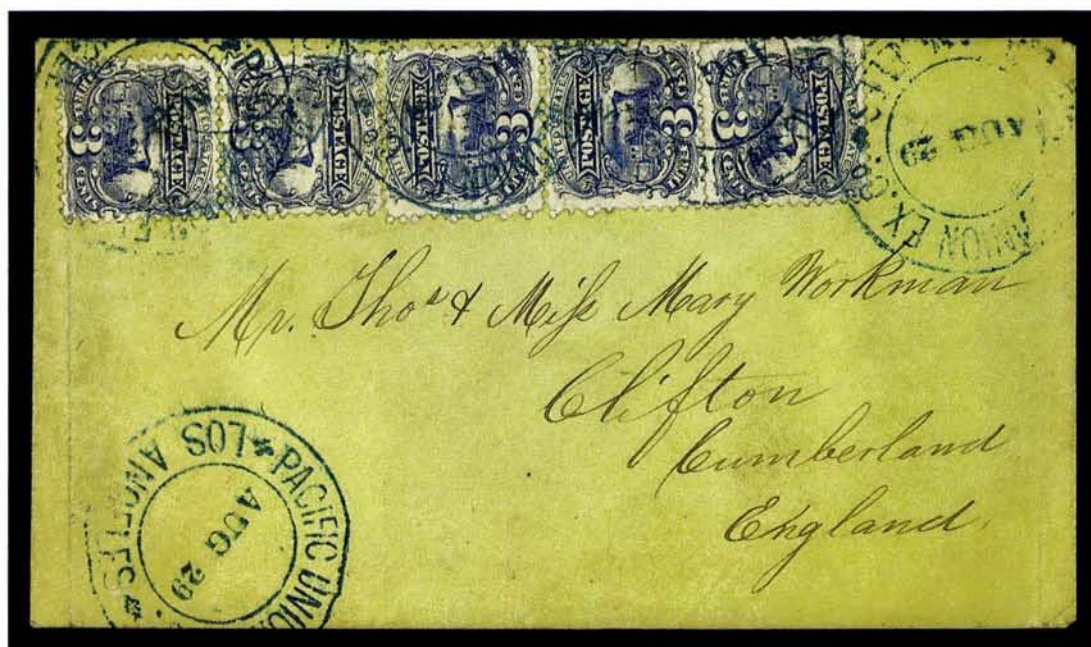 3 POSTAGE
3 POSTAGE
POSTAGE 3
POSTAGE 3 CENTS
3 POSTAGE
AUG 29
UNION EX. CO.
Mr. Thos & Miss Mary Workman
Clifton
Cumberland
England.
PACIFIC UNION
LOS ANGELES
AUG 29